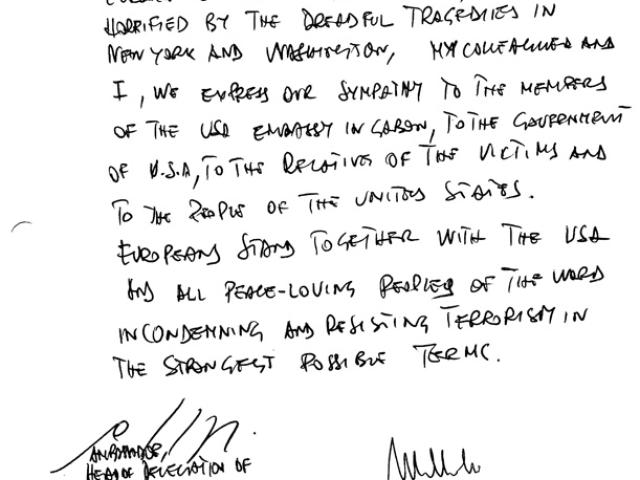 HORRIFIED BY THE DREADFUL TRAGEDIES IN
NEW YORK AND WASHINGTON, MY COLLEAGUES AND
I, WE EXPRESS OUR SYMPATHY TO THE MEMBERS
OF THE USA EMBASSY IN GABON, TO THE GOVERNMENT
OF U.S.A, TO THE RELATIVES OF THE VICTIMS AND
TO THE PEOPLE OF THE UNITED STATES.
EUROPEANS STAND TOGETHER WITH THE USA
AND ALL PEACE-LOVING PEOPLES OF THE WORD
IN CONDEMNING AND RESISTING TERRORISM IN
THE STRONGEST POSSIBLE TERMS.
AMBASSADOR,
HEAD OF DELEGATION OF